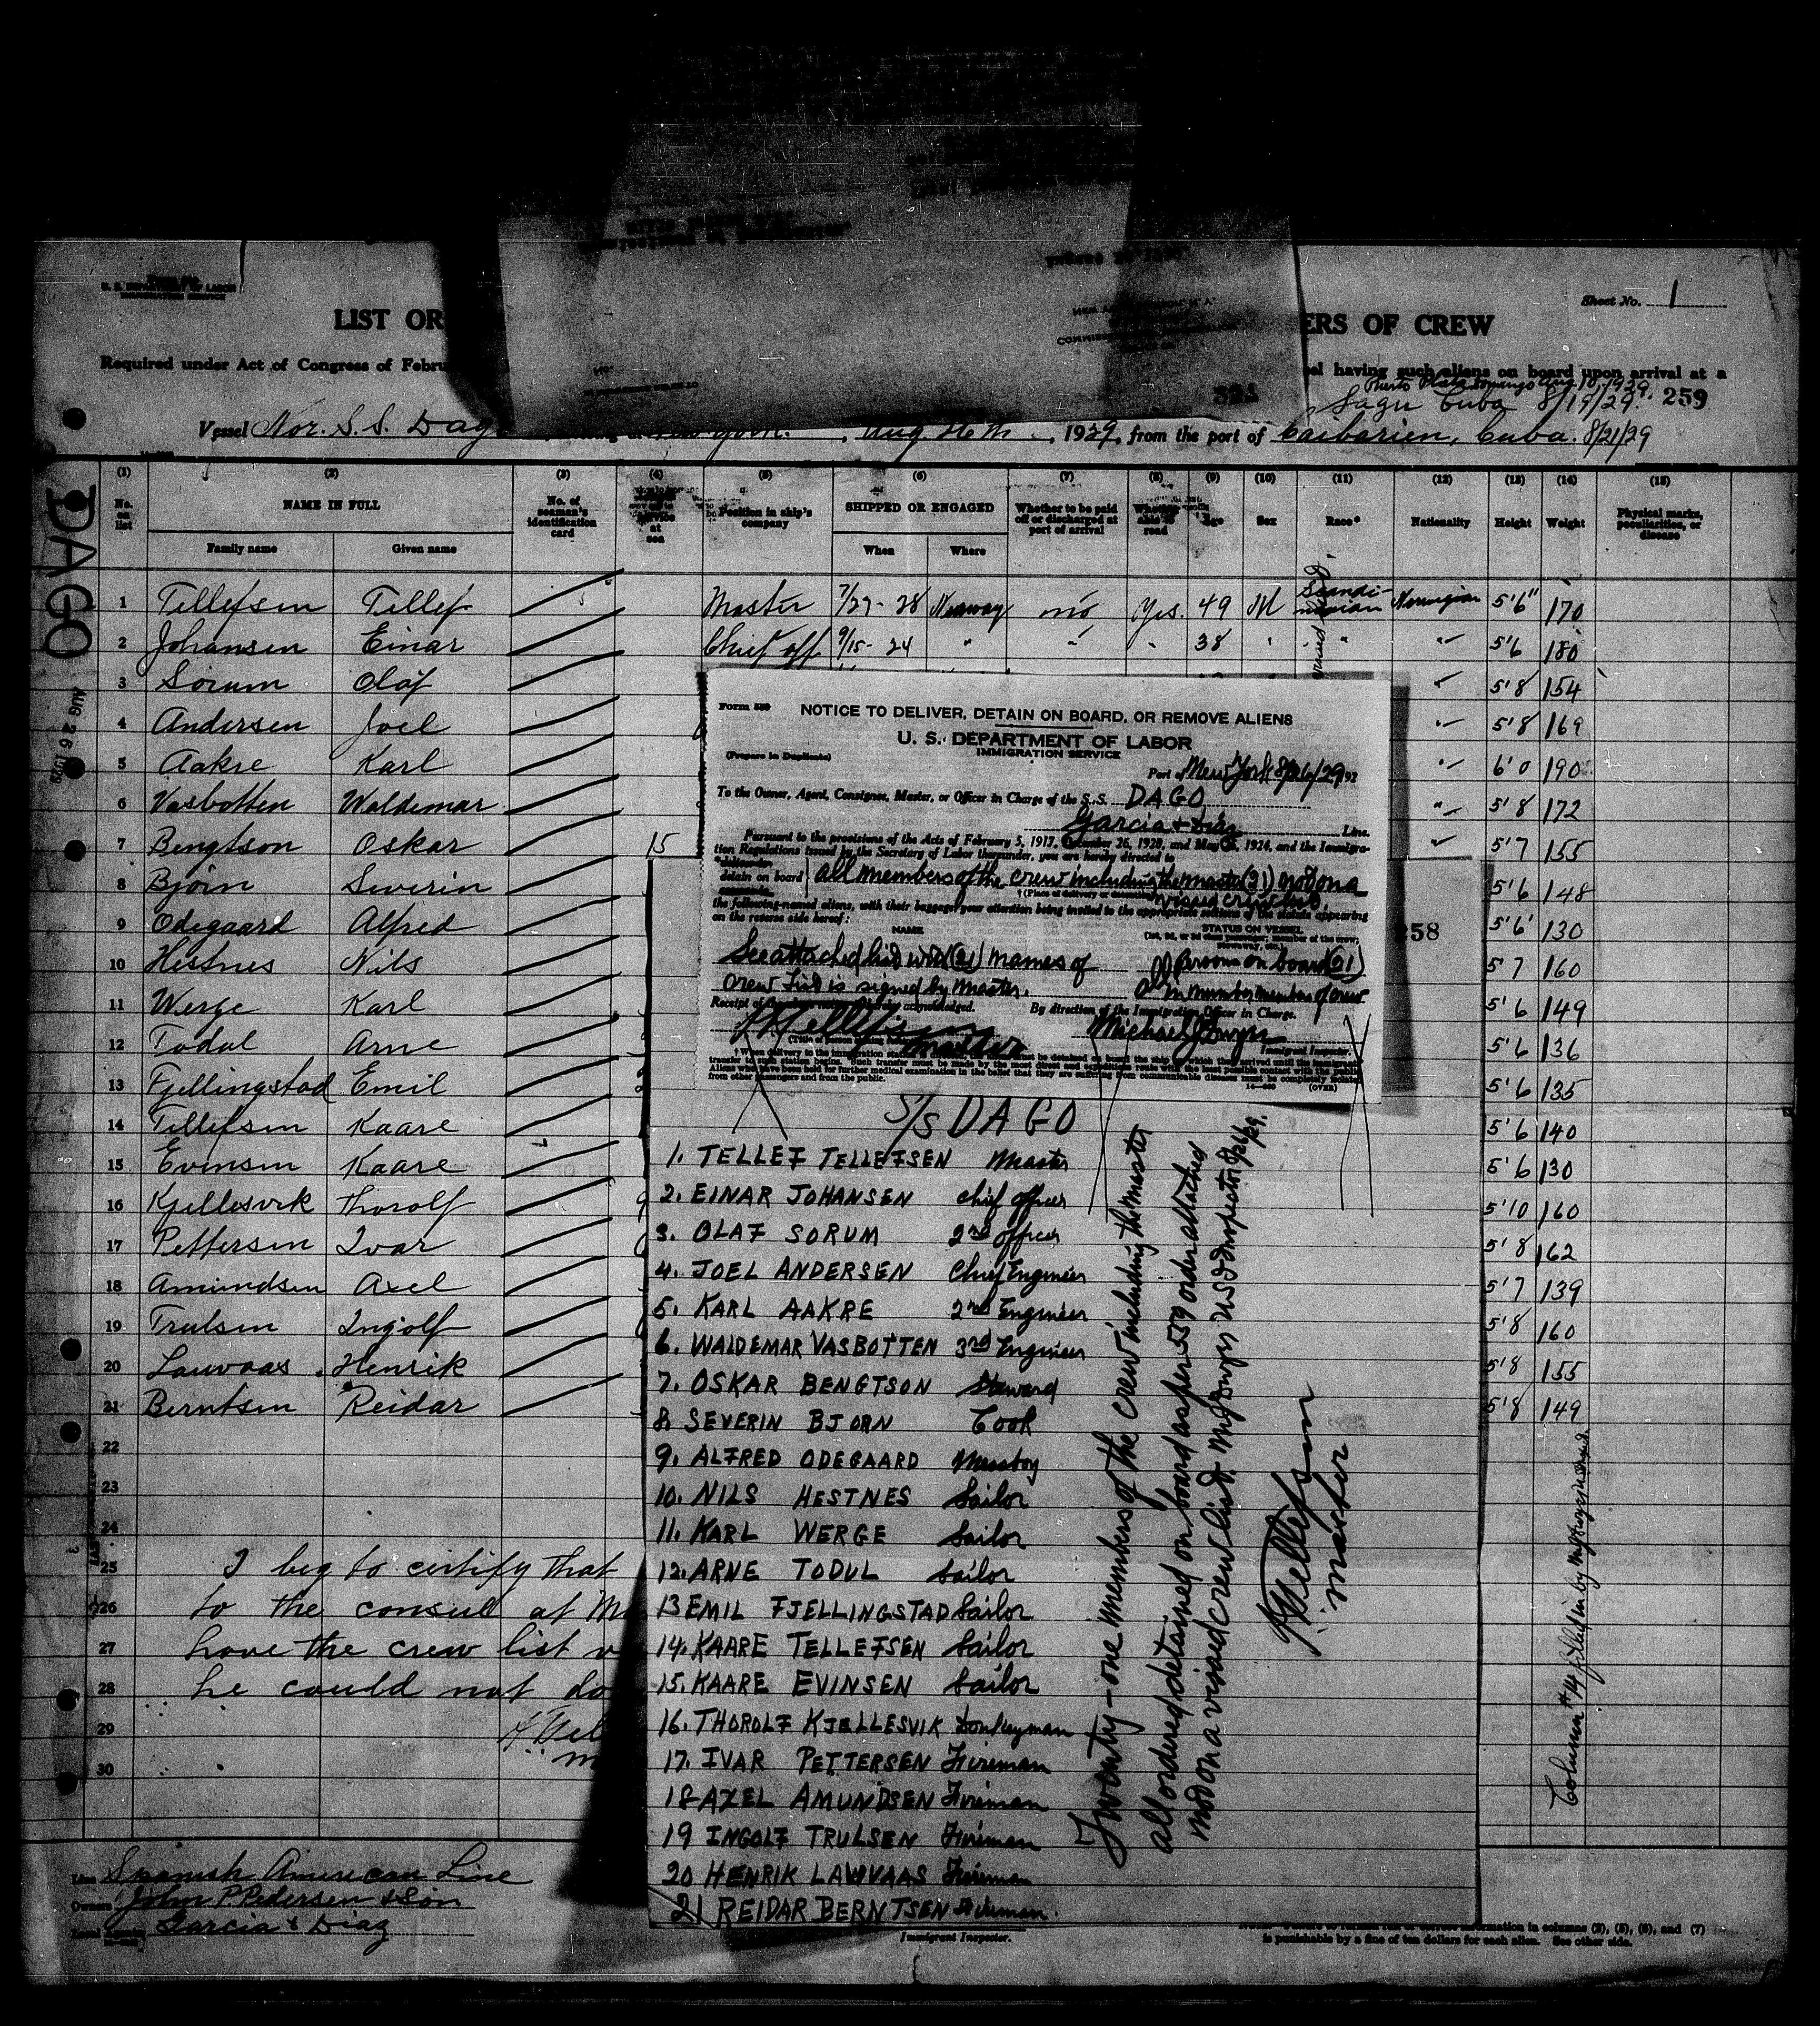 U. S. DEPARTMENT OF LABOR
IMMIGRATION SERVICE
Sheet No. 1
LIST OR
ERS OF CREW
Required under Act of Congress of Febru
el having such aliens on board upon arrival at a
Puerto Plata Domingo Aug 18, 1929.
Sagu Cuba 8/19/29. 259
Vessel Nor. S. S. Dago
New York. , Aug 26th , 1929, from the port of Caibarien, Cuba. 8/21/29
DAGO
AUG 26 1929
(1) (2) (3) (4) (5) (6) (7) (8) (9) (10) (11) (12) (13) (14) (15)
No. on list
NAME IN FULL
Family name Given name
No. of seaman's identification card
service at sea
Position in ship's company
SHIPPED OR ENGAGED
When Where
Whether to be paid off or discharged at port of arrival
Whether able to read
Age
Sex
Race*
Nationality
Height
Weight
Physical marks, peculiarities, or disease
1 Tellefsen Tellef Master 7/27-28 Norway no Yes. 49 M Scandinavian Norwegian 5'6" 170
2 Johansen Einar Chief off 9/15-24 " " " 38 " " " 5'6 180
3 Sorum Olaf " 5'8 154
4 Andersen Joel " 5'8 169
5 Aakre Karl " 6'0 190
6 Vasbotten Waldemar " 5'8 172
7 Bengtson Oskar 15 " 5'7 155
8 Bjorn Severin 5'6 148
9 Odegaard Alfred 5'6 130
10 Hestnes Nils 5 7 160
11 Werge Karl 5'6 149
12 Todul Arne 5'6 136
13 Fjellingstad Emil 5'6 135
14 Tellefsen Kaare 5'6 140
15 Evinsen Kaare 5'6 130
16 Kjellesvik Thorolf 5'10 160
17 Pettersen Ivar 5'8 162
18 Amundsen Axel 5'7 139
19 Trulsen Ingolf 5'8 160
20 Lauvaas Henrik 5'8 155
21 Berntsen Reidar 5'8 149
22
23
24
25 I beg to certify that
26 to the consul at M
27 have the crew list v
28 he could not do
29
30
258
Form 559
NOTICE TO DELIVER, DETAIN ON BOARD, OR REMOVE ALIENS
U. S. DEPARTMENT OF LABOR
IMMIGRATION SERVICE
(Prepare in Duplicate)
Port of New York 8/26/29 192
To the Owner, Agent, Consignee, Master, or Officer in Charge of the S. S. DAGO
Garcia & Diaz Line.
Pursuant to the provisions of the Acts of February 5, 1917, December 26, 1920, and May 26, 1924, and the Immigra-
tion Regulations issued by the Secretary of Labor thereunder, you are hereby directed to
detain on board all members of the crew including the master (21) not on a
visaed crew list.
the following-named aliens, with their baggage, your attention being invited to the appropriate sections of the statute appearing
on the reverse side hereof:
NAME
STATUS ON VESSEL
See attached list with (21) names of
all Persons on board (21)
Crew List is signed by Master.
in number members of crew
Receipt of acknowledged.
By direction of the Immigration Officer in Charge.
Tellefsen
master
Immigrant Inspector.
from other passengers and from the public.
(OVER)
S/S DAGO
1. TELLEF TELLEFSEN Master
2. EINAR JOHANSEN chief officer
3. OLAF SORUM 2nd officer
4. JOEL ANDERSEN Chief Engineer
5. KARL AAKRE 2nd Engineer
6. WALDEMAR VASBOTTEN 3rd Engineer
7. OSKAR BENGTSON Steward
8. SEVERIN BJORN Cook
9. ALFRED ODEGAARD Messboy
10. NILS HESTNES Sailor
11. KARL WERGE Sailor
12. ARNE TODUL Sailor
13 EMIL FJELLINGSTAD Sailor
14. KAARE TELLEFSEN Sailor
15. KAARE EVINSEN Sailor
16. THOROLF KJELLESVIK Donkeyman
17. IVAR PETTERSEN Fireman
18 AXEL AMUNDSEN Fireman
19 INGOLF TRULSEN Fireman
20 HENRIK LAUVAAS Fireman
21 REIDAR BERNTSEN Fireman.
Twenty-one members of the crew including the master
all ordered detained on board as per 559 order attached
not on a visaed crew list. U S I Inspector 8/26/29.
Tellefsen
master
Column #14 filled in by
Line Spanish American Line
Owners John P. Pedersen & Son
Garcia & Diaz
Immigrant Inspector.
information in columns (2), (5), (6), and (7)
is punishable by a fine of ten dollars for each alien. See other side.